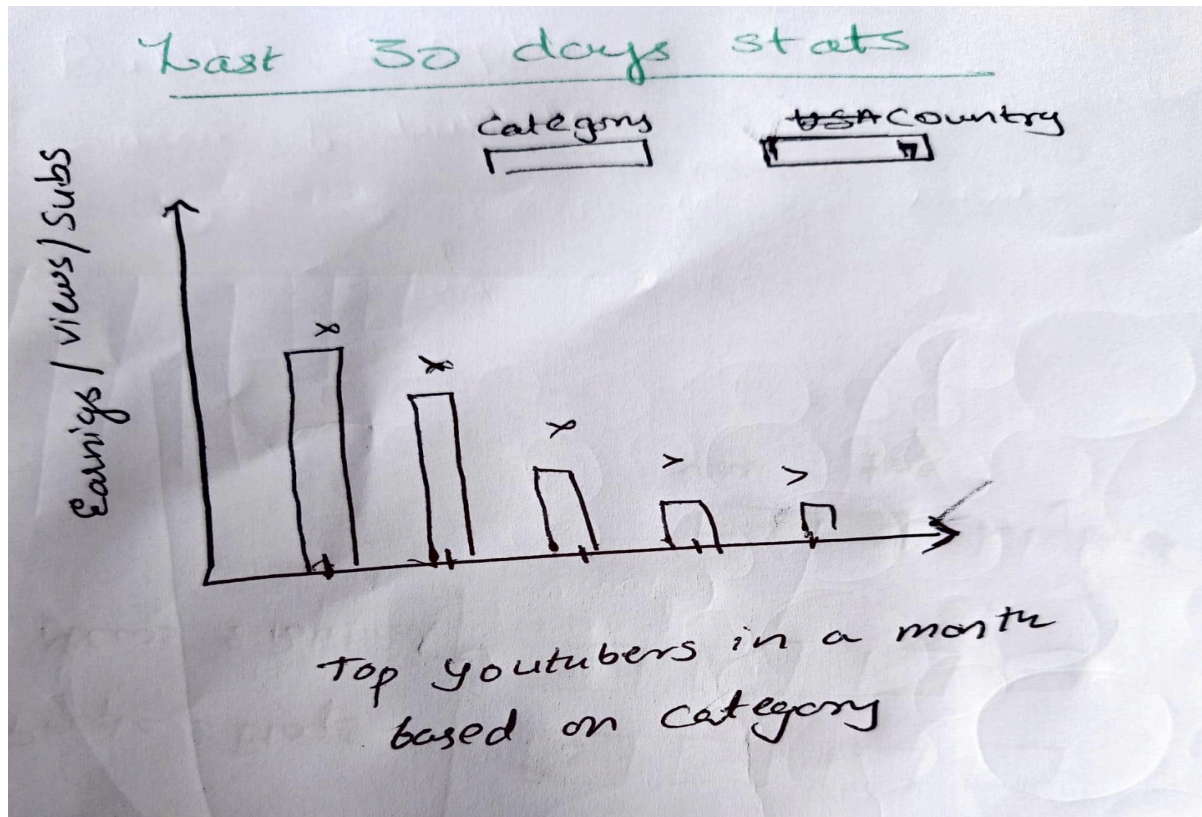 Last 30 days stats
Category
USA Country
Earnigs / views / Subs
Top youtubers in a month
based on category